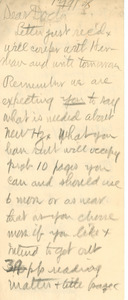 Dear Bach
Letter just rec'd &
will confer with Her-
man and write tomorrow
Remember we are
expecting you to say
what is needed about
new Hg. What you
can will occupy
prob 10 pages you
can and should use
6 more or as near
that as you choose
more if you like &
intend to get out
pp reading
matter & title page